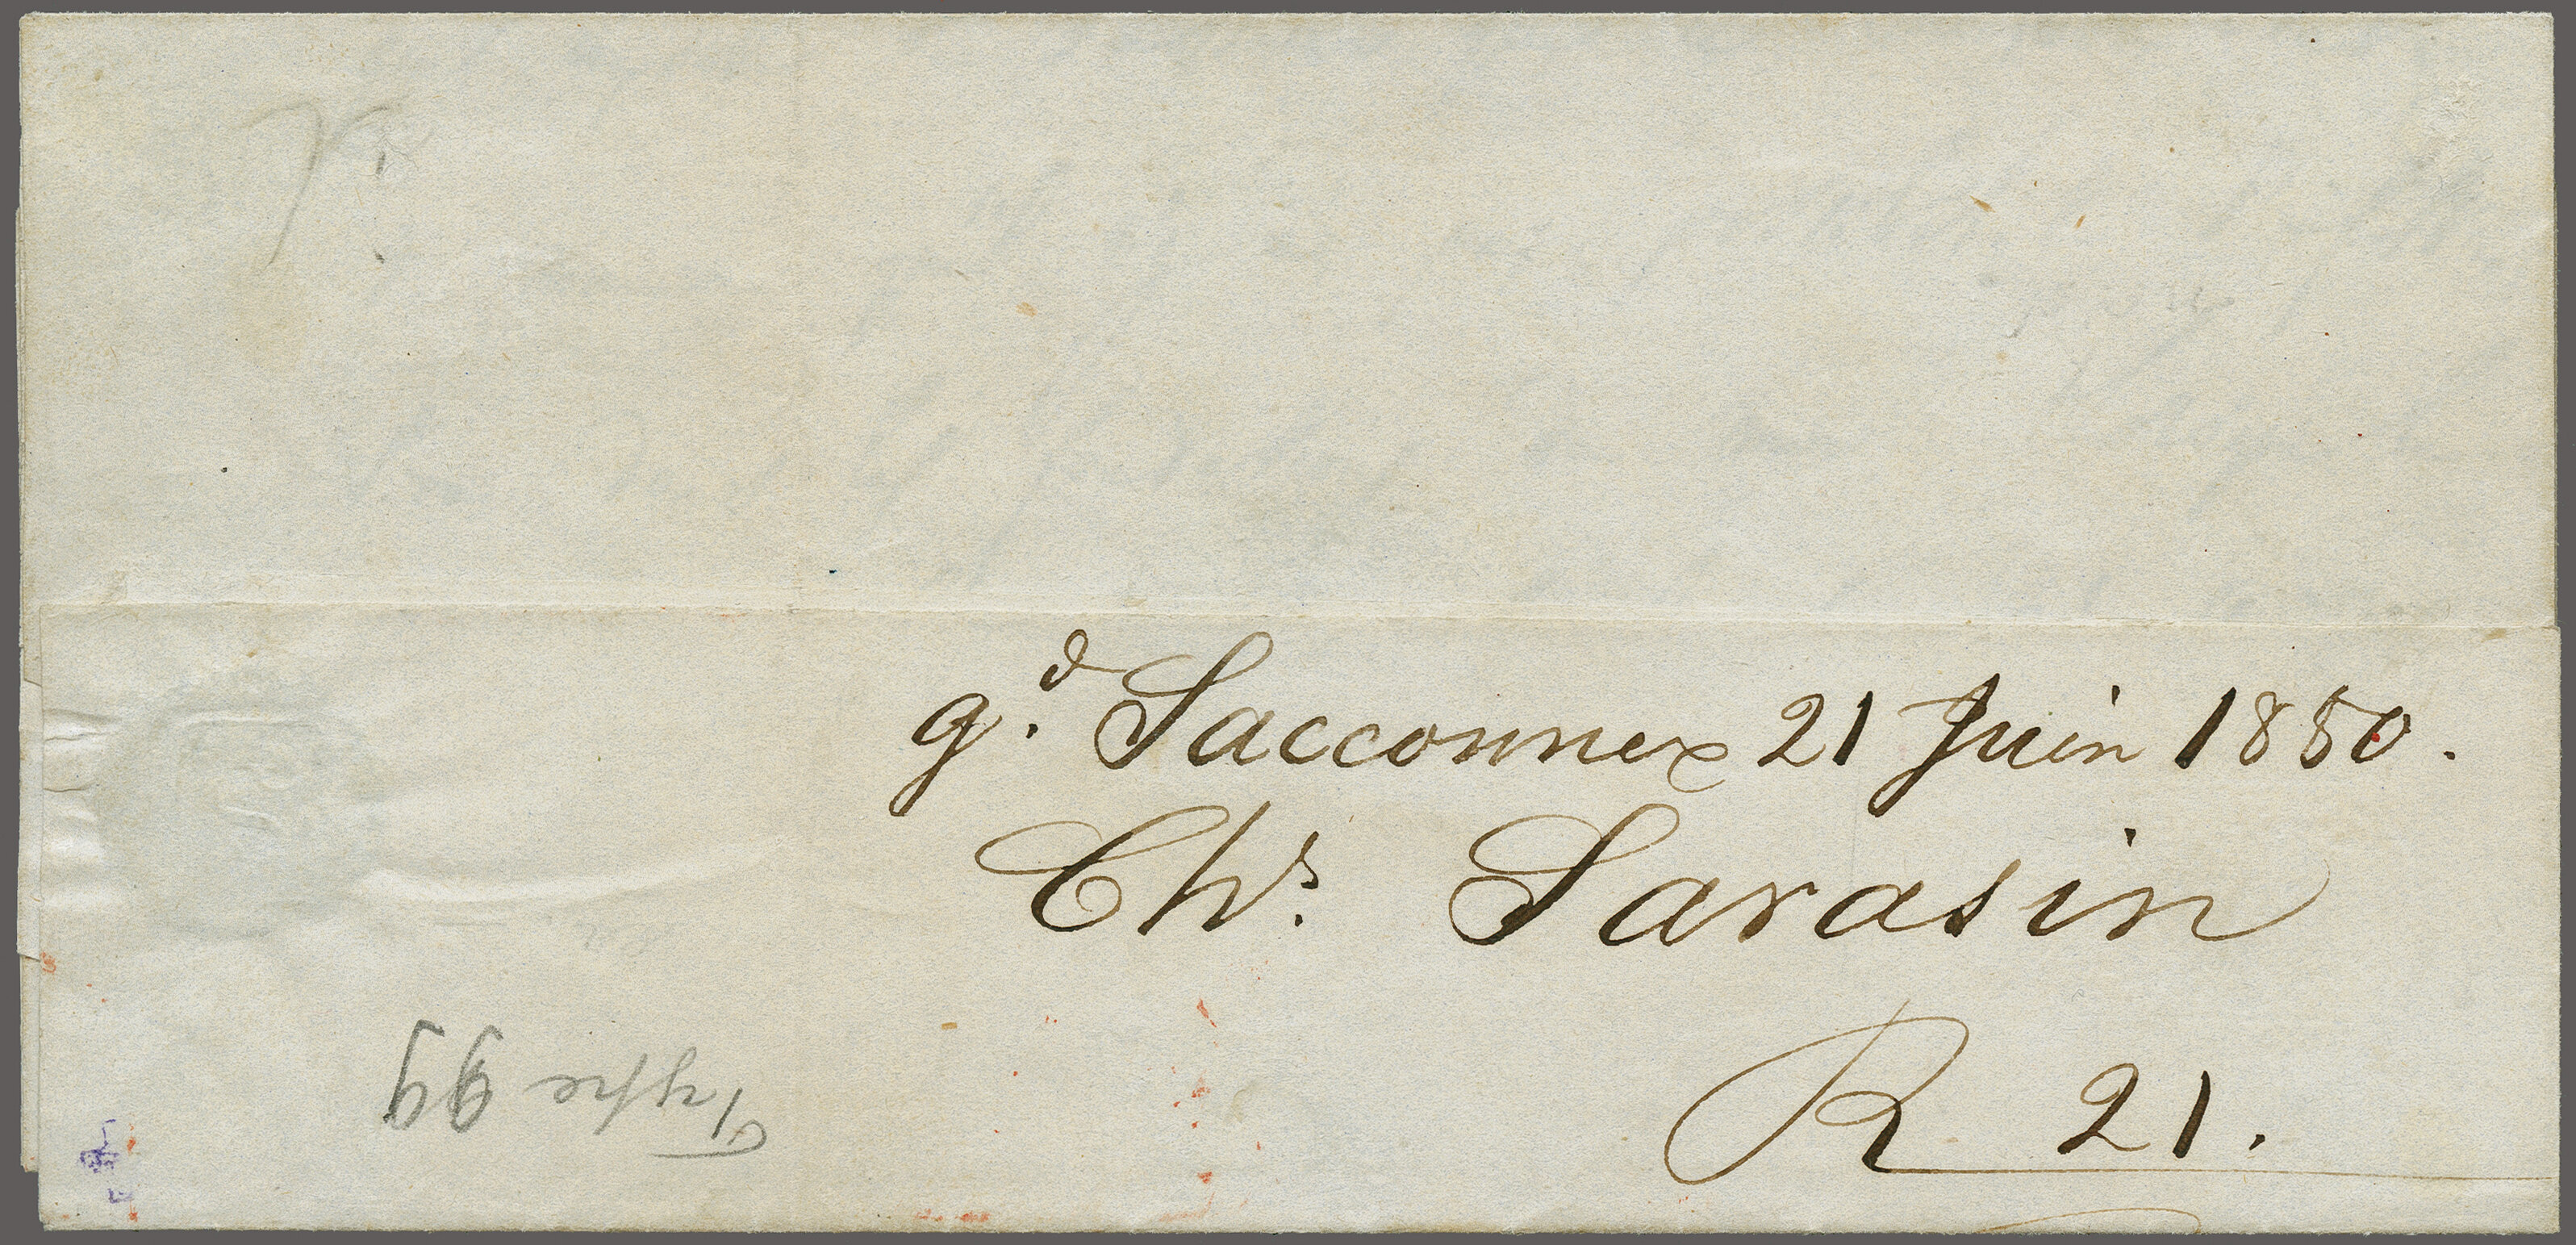 g.d Sacconnex 21 Juin 1850.
Chs. Sarasin
R 21.
Type 99